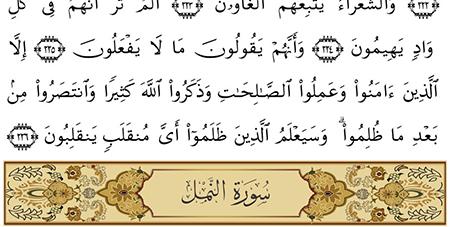 ﴿٢٢٣﴾ وَٱلشُّعَرَآءُ يَتَّبِعُهُمُ ٱلْغَاوُۥنَ ﴿٢٢٤﴾ أَلَمْ تَرَ أَنَّهُمْ فِى كُلِّ
وَادٍ يَهِيمُونَ ﴿٢٢٤﴾ وَأَنَّهُمْ يَقُولُونَ مَا لَا يَفْعَلُونَ ﴿٢٢٥﴾ إِلَّا
ٱلَّذِينَ ءَامَنُوا۟ وَعَمِلُوا۟ ٱلصَّٰلِحَٰتِ وَذَكَرُوا۟ ٱللَّهَ كَثِيرًا وَٱنتَصَرُوا۟ مِنۢ
بَعْدِ مَا ظُلِمُوا۟ ۗ وَسَيَعْلَمُ ٱلَّذِينَ ظَلَمُوٓا۟ أَىَّ مُنقَلَبٍ يَنقَلِبُونَ ﴿٢٢٦﴾
سُورَةُ النَّمْلِ